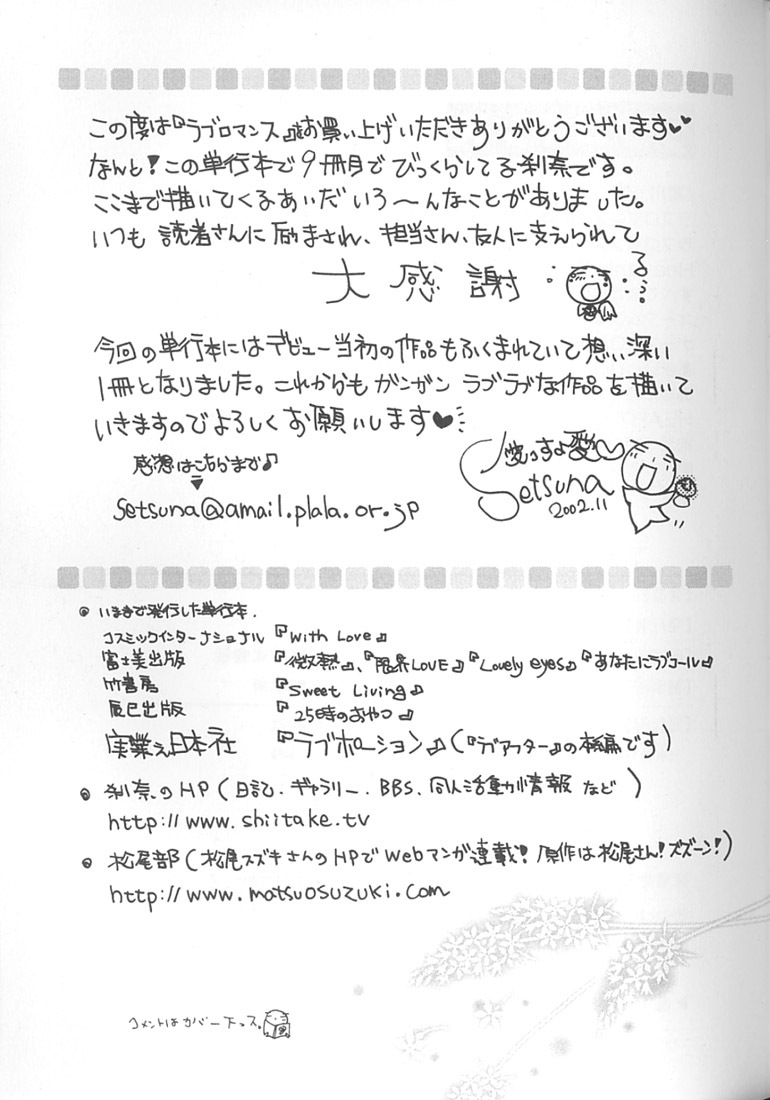 この度は『ラブロマンス』をお買い上げいただきありがとうございます♥♥
なんと!この単行本で9冊目でびっくらしてる刹奈です。
ここまで描いてくるあいだいろ〜んなことがありました。
いつも読者さんに励まされ、担当さん、友人に支えられて
大感謝
今回の単行本にはデビュー当初の作品もふくまれていて想い深い
1冊となりました。これからもガンガンラブラブな作品を描いて
いきますのでよろしくお願いします♥
感想はこちらまで♪
▼
setsuna@amail.plala.or.jp
愛っすよ愛
Setsuna
2002.11
● いままで発行した単行本.
コスミックインターナショナル 『With Love』
富士美出版 『微熱』、『限界LOVE』『Lovely eyes』『あなたにラブコール』
竹書房 『Sweet Living』
辰巳出版 『25時のおやつ』
実業之日本社 『ラブポーション』(『ラブアフター』の本編です)
● 刹奈のHP(日記.ギャラリー.BBS、同人活動情報など)
http://www.shiitake.tv
● 松尾部(松尾スズキさんのHPでWebマンガ連載!原作は松尾さん!ズズーン!)
http://www.matsuosuzuki.com
コメントはカバー下っス。